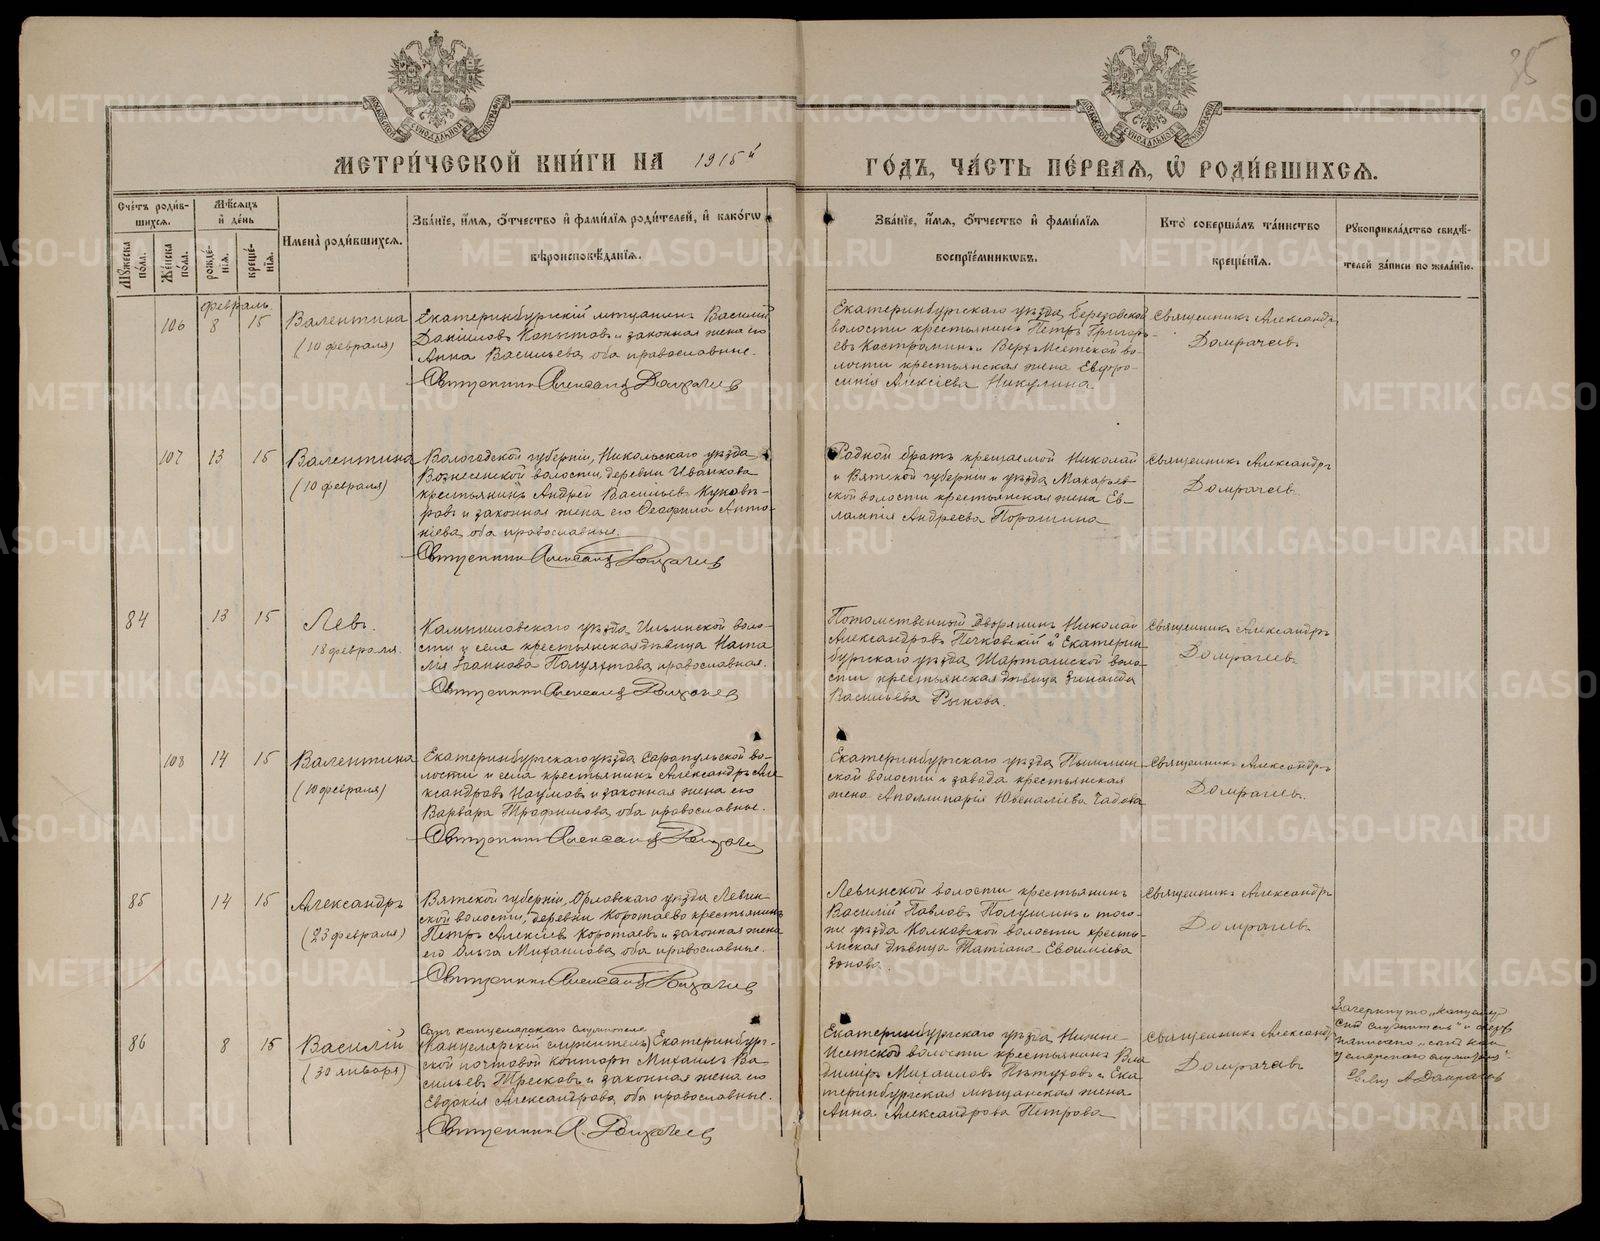 35
МЕТРИ́ЧЕСКОЙ КНИ́ГИ НА 1915й
ГО́ДЪ, ЧА́СТЬ ПЕ́РВАѦ, Ѡ҆ РОДИ́ВШИХСѦ.
Сче́тъ роди́в-
шихсѧ.
Мѣ́сѧцъ
и҆ де́нь
Мꙋ́жеска по́ла.
Же́нска по́ла.
рожде́-
нїѧ.
креще́-
нїѧ.
И҆мена̀ роди́вшихсѧ.
Зва́нїе, и҆́мѧ, ѻ҆́тчество и҆ фами́лїѧ роди́телей, и҆ како́гѡ
вѣроисповѣ́данїѧ.
Зва́нїе, и҆́мѧ, ѻ҆́тчество и҆ фами́лїѧ
воспрїе́мникѡвъ.
Кто̀ соверша́лъ та́инство
креще́нїѧ.
Рꙋкоприкла́дство свидѣ́-
телей за́писи по жела́нїю.
Февраль
106 8 15 Валентина
(10 февраля)
Екатеринбургскій мѣщанинъ Василій
Даніиловъ Копытовъ и законная жена его
Анна Васильева, оба православные.
Священникъ Александръ Домрачевъ
Екатеринбургскаго уѣзда, Березовской
волости крестьянинъ Петръ Григорь-
евъ Костроминъ и Верхъ-Исетской во-
лости крестьянская жена Евфро-
синія Алексіева Никулина
Священникъ Александръ
Домрачевъ
107 13 15 Валентина
(10 февраля)
Вологодской губерніи, Никольскаго уѣзда
Вознесенской волости, деревни Ивакова
крестьянинъ Андрей Васильевъ
и законная жена его Ѳеофила Анто-
ніева, оба православные.
Священникъ Александръ Домрачевъ
Родной братъ крещаемой Николай
и Вятской губерніи и уѣзда Макарьев-
ской волости крестьянская жена Ев-
лампія Андреева Порошина
Священникъ Александръ
Домрачевъ
84 13 15 Левъ.
18 февраля.
Камышловскаго уѣзда, Ильинской воло-
сти и села крестьянская дѣвица Ната-
лія Іоаннова Полуяхтова, православная.
Священникъ Александръ Домрачевъ
Потомственный дворянинъ Николай
Александровъ Печковскій и Екатерин-
бургскаго уѣзда, Шарташской воло-
сти крестьянская дѣвица Зинаида
Васильева Рыкова.
Священникъ Александръ
Домрачевъ
108 14 15 Валентина
(10 февраля)
Екатеринбургскаго уѣзда Сарапульской во-
лости и села крестьянинъ Александръ Але-
ксандровъ Наумовъ и законная жена его
Варвара Трофимова, оба православные.
Священникъ Александръ Домрачевъ
Екатеринбургскаго уѣзда Пышмин-
ской волости и завода крестьянская
жена Аполлинарія Ювеналіева Чадова
Священникъ Александръ
Домрачевъ.
85 14 15 Александръ
(23 февраля)
Вятской губерніи, Орловскаго уѣзда Левин-
ской волости, деревни Коротаево крестьянинъ
Петръ Алексіевъ Коротаевъ и законная жена
его Ольга Михаилова, оба православные.
Священникъ Александръ Домрачевъ
Левинской волости крестьянинъ
Василій Павловъ Полушинъ и того-
же уѣзда Колковской волости кресть-
янская дѣвица Татіана
Зонова.
Священникъ Александръ
Домрачевъ
86 8 15 Василій
(30 января)
Сынъ канцелярскаго служителя
(Канцелярскій служитель) Екатеринбург-
ской почтовой конторы Михаилъ Ва-
сильевъ Тресковъ и законная жена его
Евдокія Александрова, оба православные.
Священникъ А. Домрачевъ
Екатеринбургскаго уѣзда Нижне-
Исетской волости крестьянинъ Вла-
димиръ Михаиловъ Пѣтуховъ и Ека-
теринбургская мѣщанская жена
Анна Александрова Петрова
Священникъ Александръ
Домрачевъ
Зачеркнуто „канцеляр-
скій служитель" и сверху
написано „сынъ кан-
целярскаго служителя".
Свящ А Домрачевъ
METRIKI.GASO-URAL.RU